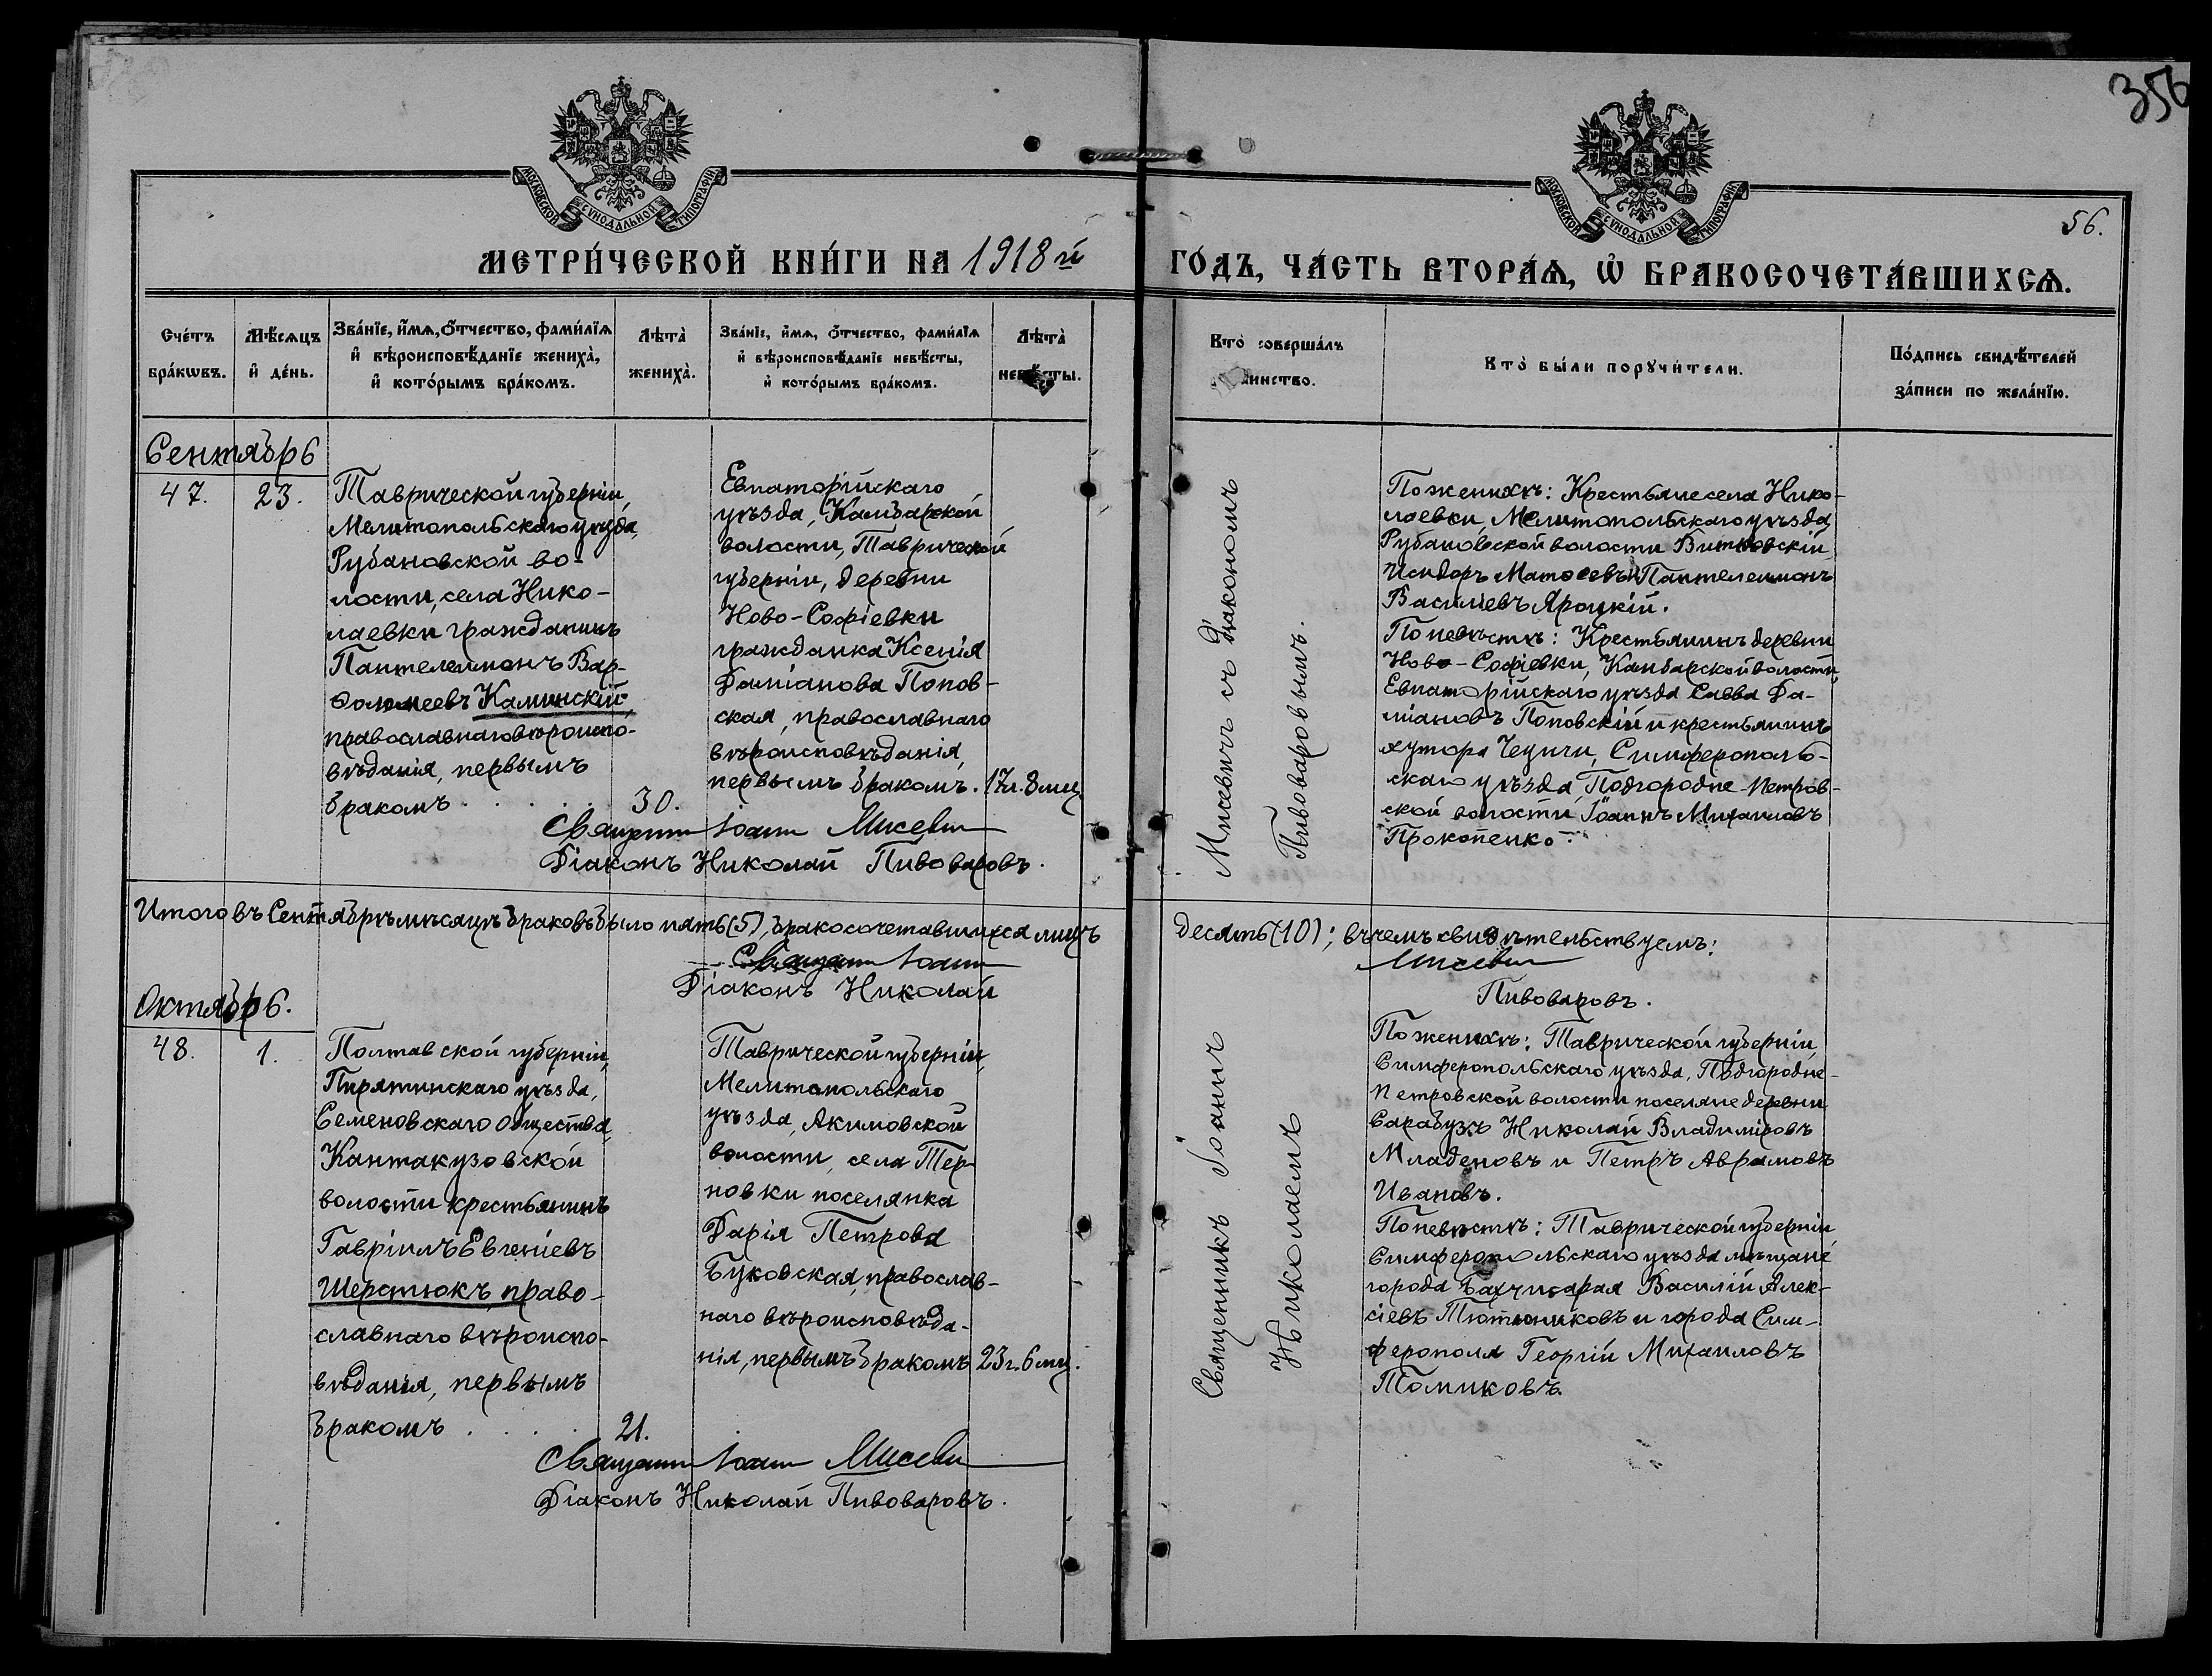 356
МОСКОВСКОЙ СѴНОДАЛЬНОЙ ТИПОГРАФІИ
МОСКОВСКОЙ СѴНОДАЛЬНОЙ ТИПОГРАФІИ
56.
МЕТРИ́ЧЕСКОЙ КНИ́ГИ НА 1918 й
ГО́ДЪ, ЧА́СТЬ ВТОРА́Ѧ, Ѽ БРАКОСОЧЕТА́ВШИХСѦ.
Сче́тъ
бра́кѡвъ.
Мѣ́сѧцъ
и҆ де́нь.
Зва́нїе, и҆́мѧ, ѻ҆́тчество, фами́лїѧ
и҆ вѣроисповѣ́данїе жениха̀,
и҆ кото́рымъ бра́комъ.
Лѣта̀
жениха̀.
Зва́нїе, и҆́мѧ, ѻ҆́тчество, фами́лїѧ
и҆ вѣроисповѣ́данїе невѣ́сты,
и҆ кото́рымъ бра́комъ.
Лѣта̀
невѣ́сты.
Кто̀ соверша́лъ
таинство.
Кто̀ бы́ли порꙋчи́тели.
По́дпись свидѣ́телей
за́писи по жела́нїю.
Сентябрь
47.
23.
Таврической губерніи,
Мелитопольскаго уѣзда,
Рубановской во-
лости, села Нико-
лаевки гражданинъ
Пантелеимонъ Вар-
ѳоломеевъ Каминскій,
православнаго вѣроиспо-
вѣданія, первымъ
бракомъ . . . . .
30.
Евпаторійскаго
уѣзда, Камбарской
волости, Таврической
губерніи, деревни
Ново-Софіевки
гражданка Ксенія
Даміанова Попов-
ская, православнаго
вѣроисповѣданія,
первымъ бракомъ.
17 л. 8 мц.
Священник Іоанн Мисевич
Діаконъ Николай Пивоваровъ.
Мисевичъ съ Діакономъ
Пивоваровымъ.
По женихѣ: Крестьяне села Нико-
лаевки, Мелитопольскаго уѣзда,
Рубановской волости Витковскій
Исидоръ Матѳеевъ и Пантелеимонъ
Василіевъ Яроцкій.
По невѣстѣ: Крестьянинъ деревни
Ново-Софіевки, Камбарской волости,
Евпаторійскаго уѣзда Савва Да-
міановъ Поповскій и крестьянинъ
хутора Чеунчи, Симферополь-
скаго уѣзда, Подгородне-Петров-
ской волости Іоаннъ Михаиловъ
Прокопенко.
Итого въ Сентябрѣ мѣсяцѣ браковъ было пять (5), бракосочетавшихся лицъ
десять (10); въ чемъ свидѣтельствуемъ:
Священник Іоанн
Мисевич
Діаконъ Николай
Пивоваровъ.
Октябрь.
48.
1.
Полтавской губерніи,
Пирятинскаго уѣзда,
Семеновскаго общества,
Кантакузовской
волости крестьянинъ
Гавріилъ Евгеніевъ
Шерстюкъ, право-
славнаго вѣроиспо-
вѣданія, первымъ
бракомъ . . . . .
21.
Таврической губерніи,
Мелитопольскаго
уѣзда, Акимовской
волости, села Тер-
новки поселянка
Дарія Петрова
Буковская, православ-
наго вѣроисповѣда-
нія, первымъ бракомъ
23 г. 6 мц.
Священник Іоанн Мисевич
Діаконъ Николай Пивоваровъ.
Священникъ Іоаннъ
Николаемъ
По женихѣ: Таврической губерніи,
Симферопольскаго уѣзда, Подгородне-
Петровской волости поселяне деревни
Сарабузъ Николай Владиміровъ
Младеновъ и Петръ Аврамовъ
Ивановъ.
По невѣстѣ: Таврической губерніи,
Симферопольскаго уѣзда мѣщане
города Бахчисарая Василій Алек-
сіевъ Тютюниковъ и города Сим-
ферополя Георгій Михаиловъ
Томиковъ.